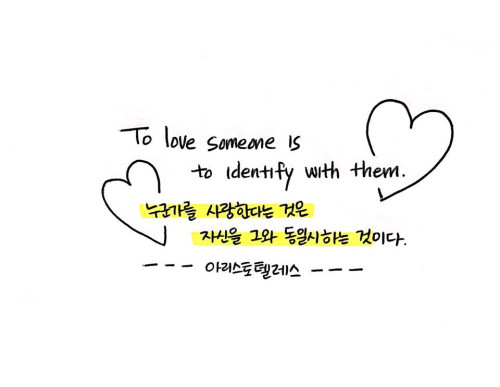 To love someone is
to identify with them.
누군가를 사랑한다는 것은
자신을 그와 동일시하는 것이다.
--- 아리스토텔레스 ---